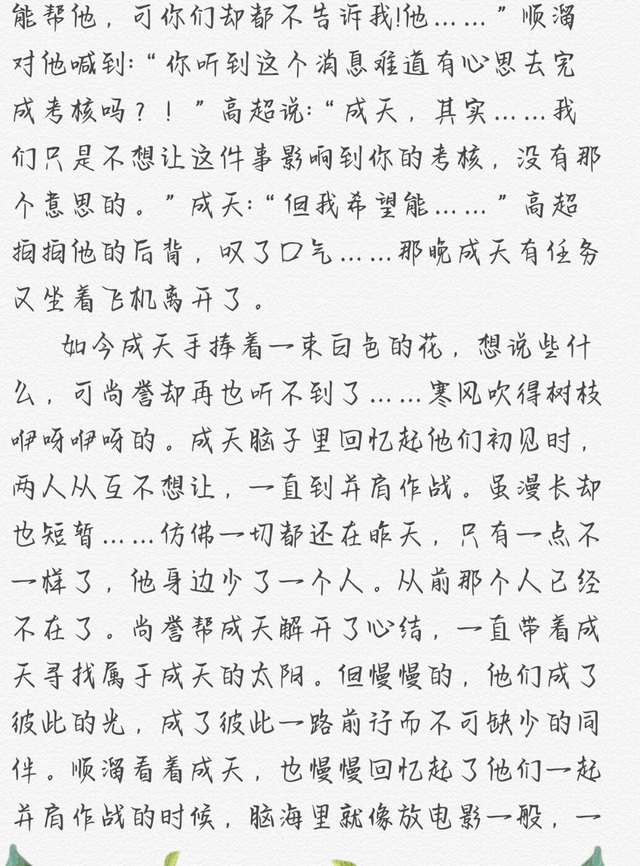 能帮他，可你们却都不告诉我!他……”顺溜
对他喊到:“你听到这个消息难道有心思去完
成考核吗？！”高超说:“成天，其实……我
们只是不想让这件事影响到你的考核，没有那
个意思的。”成天:“但我希望能……”高超
拍拍他的后背，叹了口气……那晚成天有任务
又坐着飞机离开了。
如今成天手捧着一束白色的花，想说些什
么，可尚誉却再也听不到了……寒风吹得树枝
咿呀咿呀的。成天脑子里回忆起他们初见时，
两人从互不想让，一直到并肩作战。虽漫长却
也短暂……仿佛一切都还在昨天，只有一点不
一样了，他身边少了一个人。从前那个人已经
不在了。尚誉帮成天解开了心结，一直带着成
天寻找属于成天的太阳。但慢慢的，他们成了
彼此的光，成了彼此一路前行而不可缺少的同
伴。顺溜看着成天，也慢慢回忆起了他们一起
并肩作战的时候，脑海里就像放电影一般，一